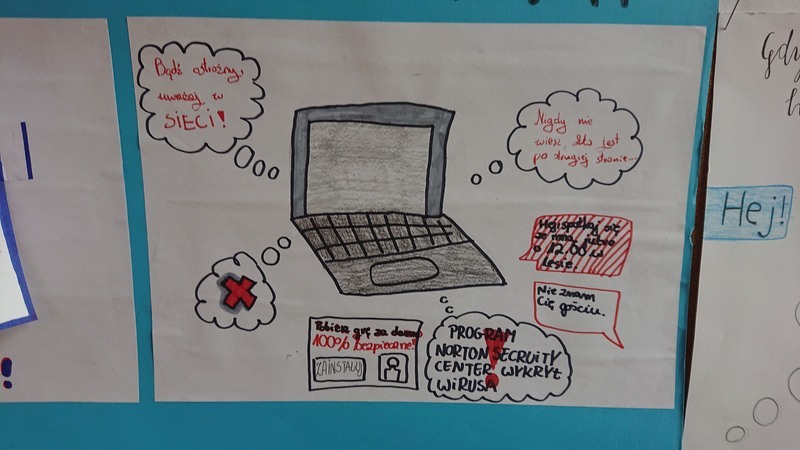 Bądź ostrożny,
uważaj w
SIECI!
Nigdy nie
wiesz, kto jest
po drugiej stronie...
Hej! spotkaj się
ze mną jutro
o 12:00 w
lesie.
Nie znam
Cię gościu.
Pobierz grę za darmo
100% bezpieczne!
ZAINSTALUJ
PROGRAM
NORTON SECRUITY
CENTER WYKRYŁ
WIRUSA
!
Hej!